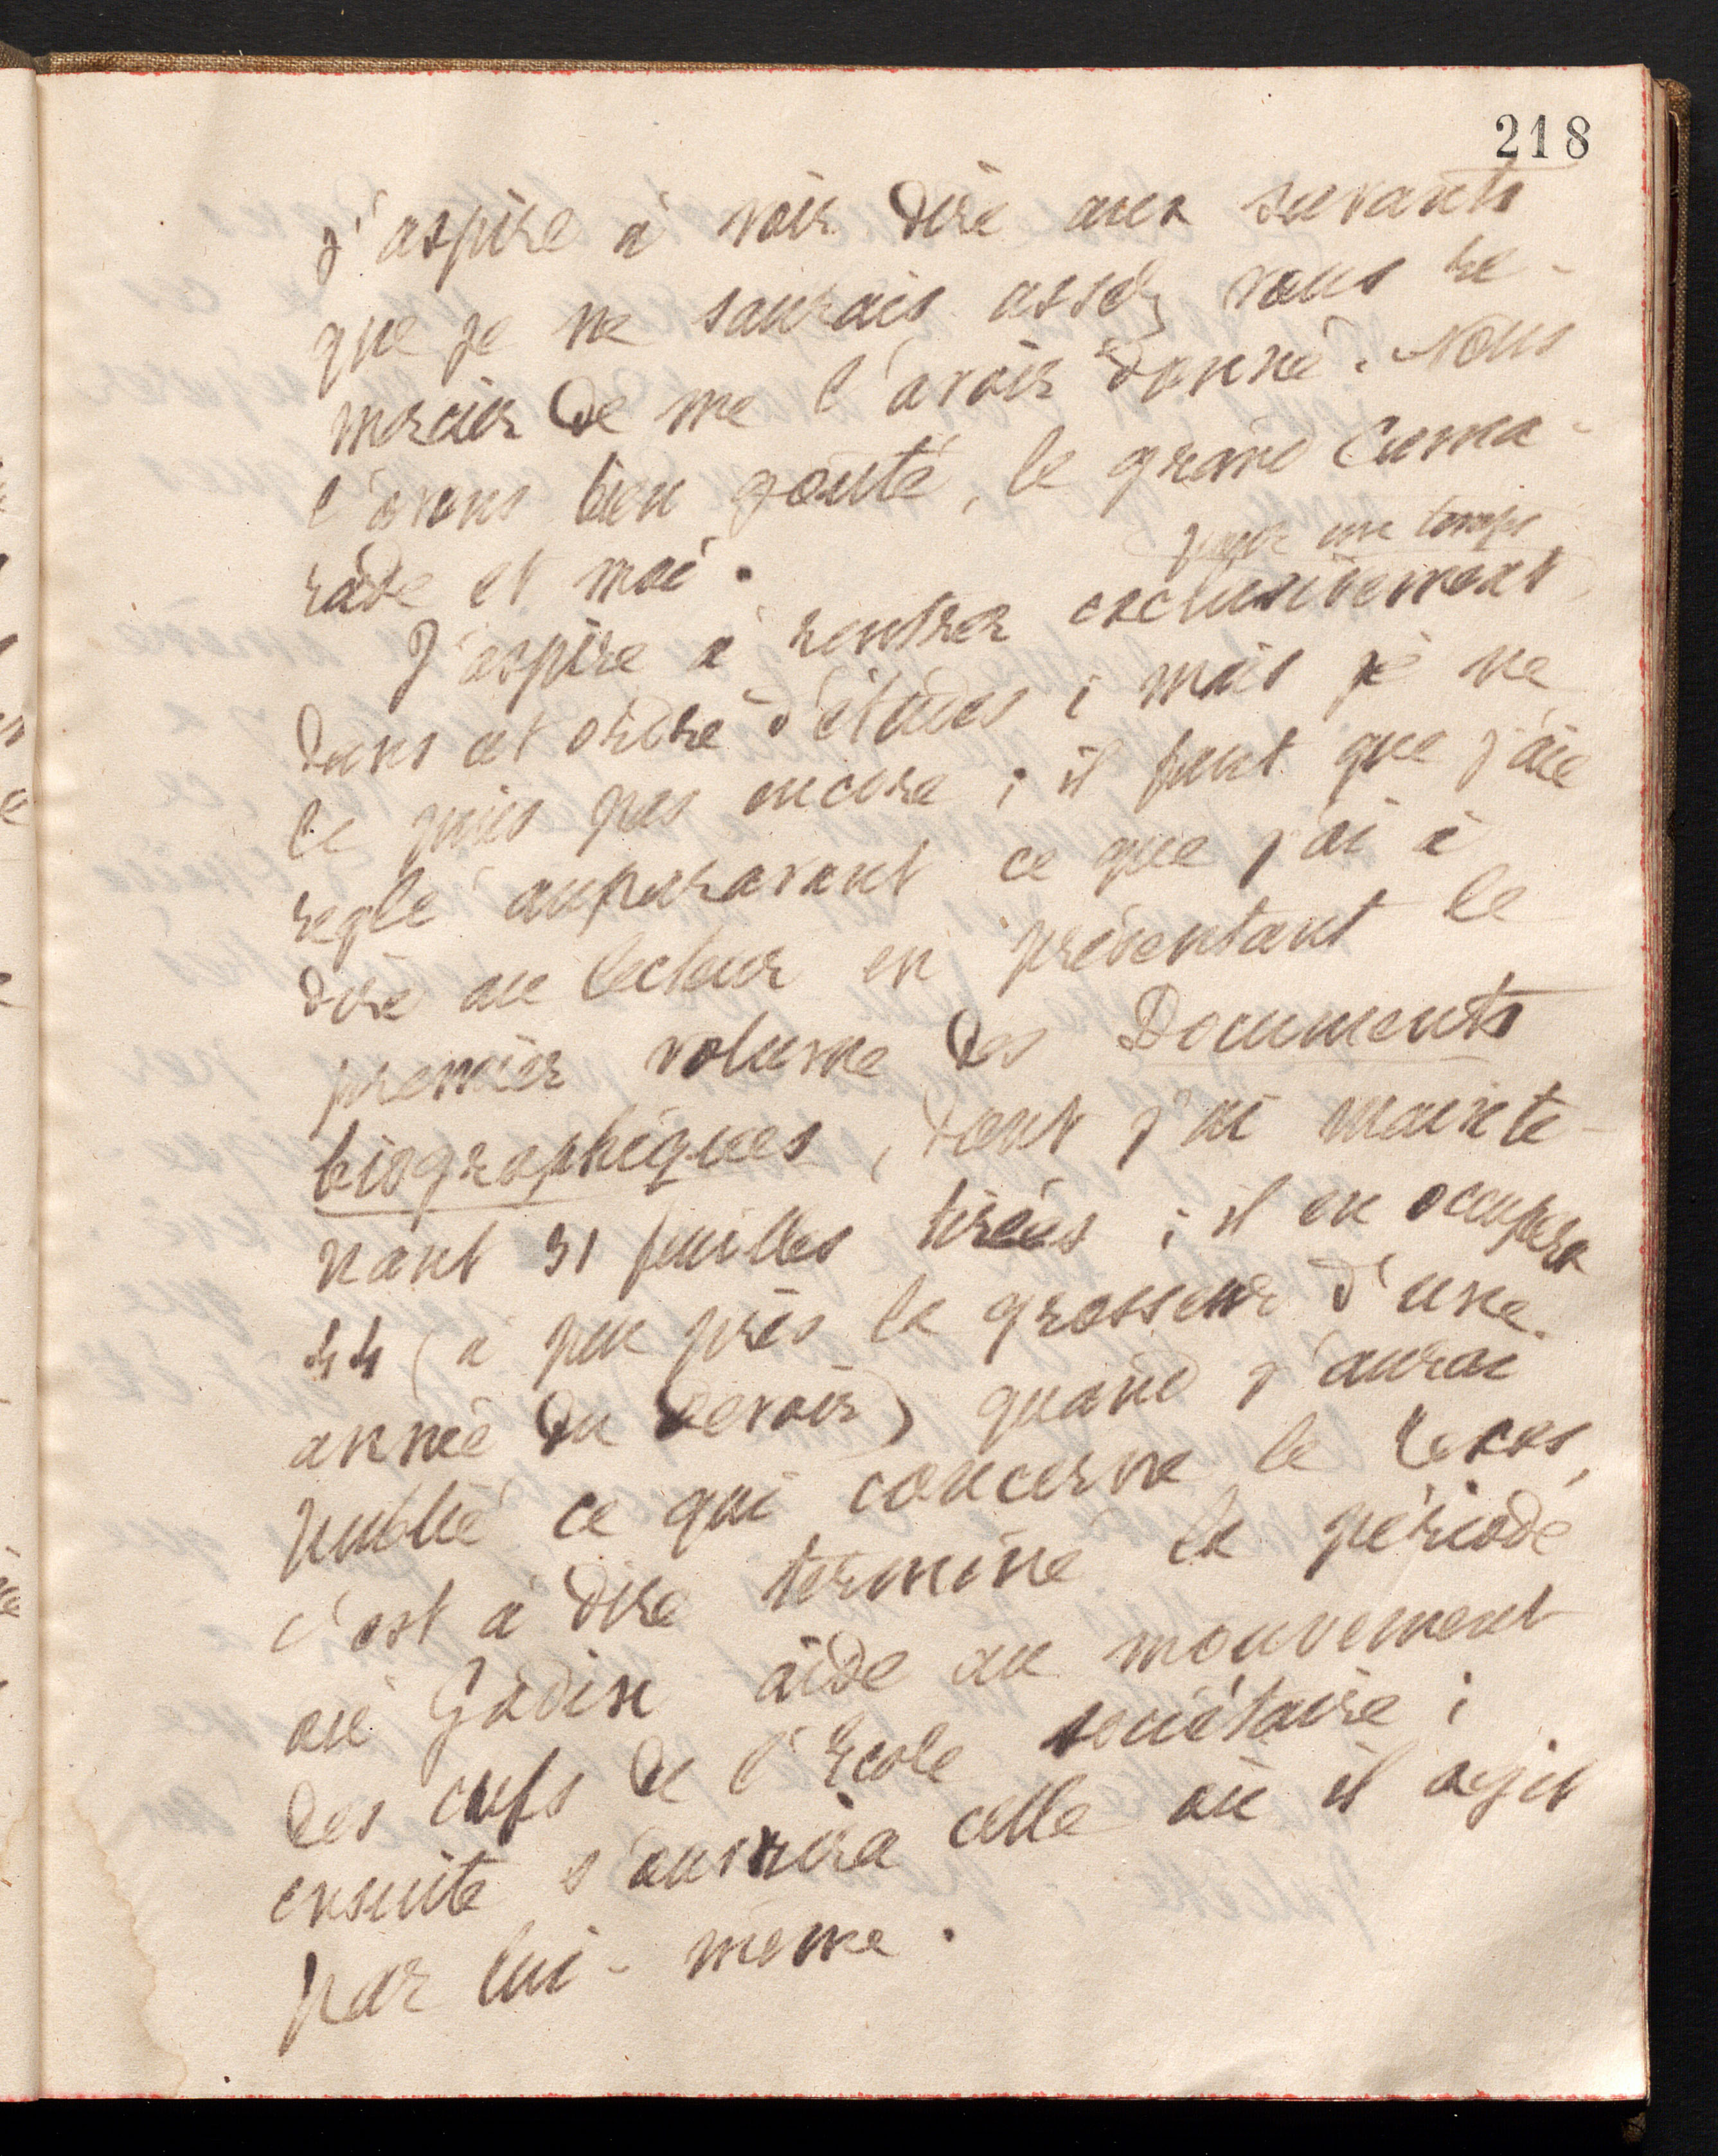 218
j'aspire à voir dire aux savants
que je ne saurais assez vous re-
mercier de me l'avoir donné. Nous
l'avons bien goûté, le grand Cama-
rade et moi.
pour un temps
J'aspire à rentrer exclusivement
dans cet ordre d'études ; mais je ne
le puis pas encore ; il faut que j'aie
réglé auparavant ce que j'ai à
dire au lecteur en présentant le
premier volume des Documents
biographiques, dont j'ai mainte-
nant 31 feuilles tirées ; il en occupera
44 (à peu près la grosseur d'une
année du Devoir) quand j'aurai
publié ce qui concerne le Texas,
c'est à dire terminé la période
où Godin aide au mouvement
des chefs de l'Ecole sociétaire ;
ensuite s'ouvrira celle où il agit
par lui-même.